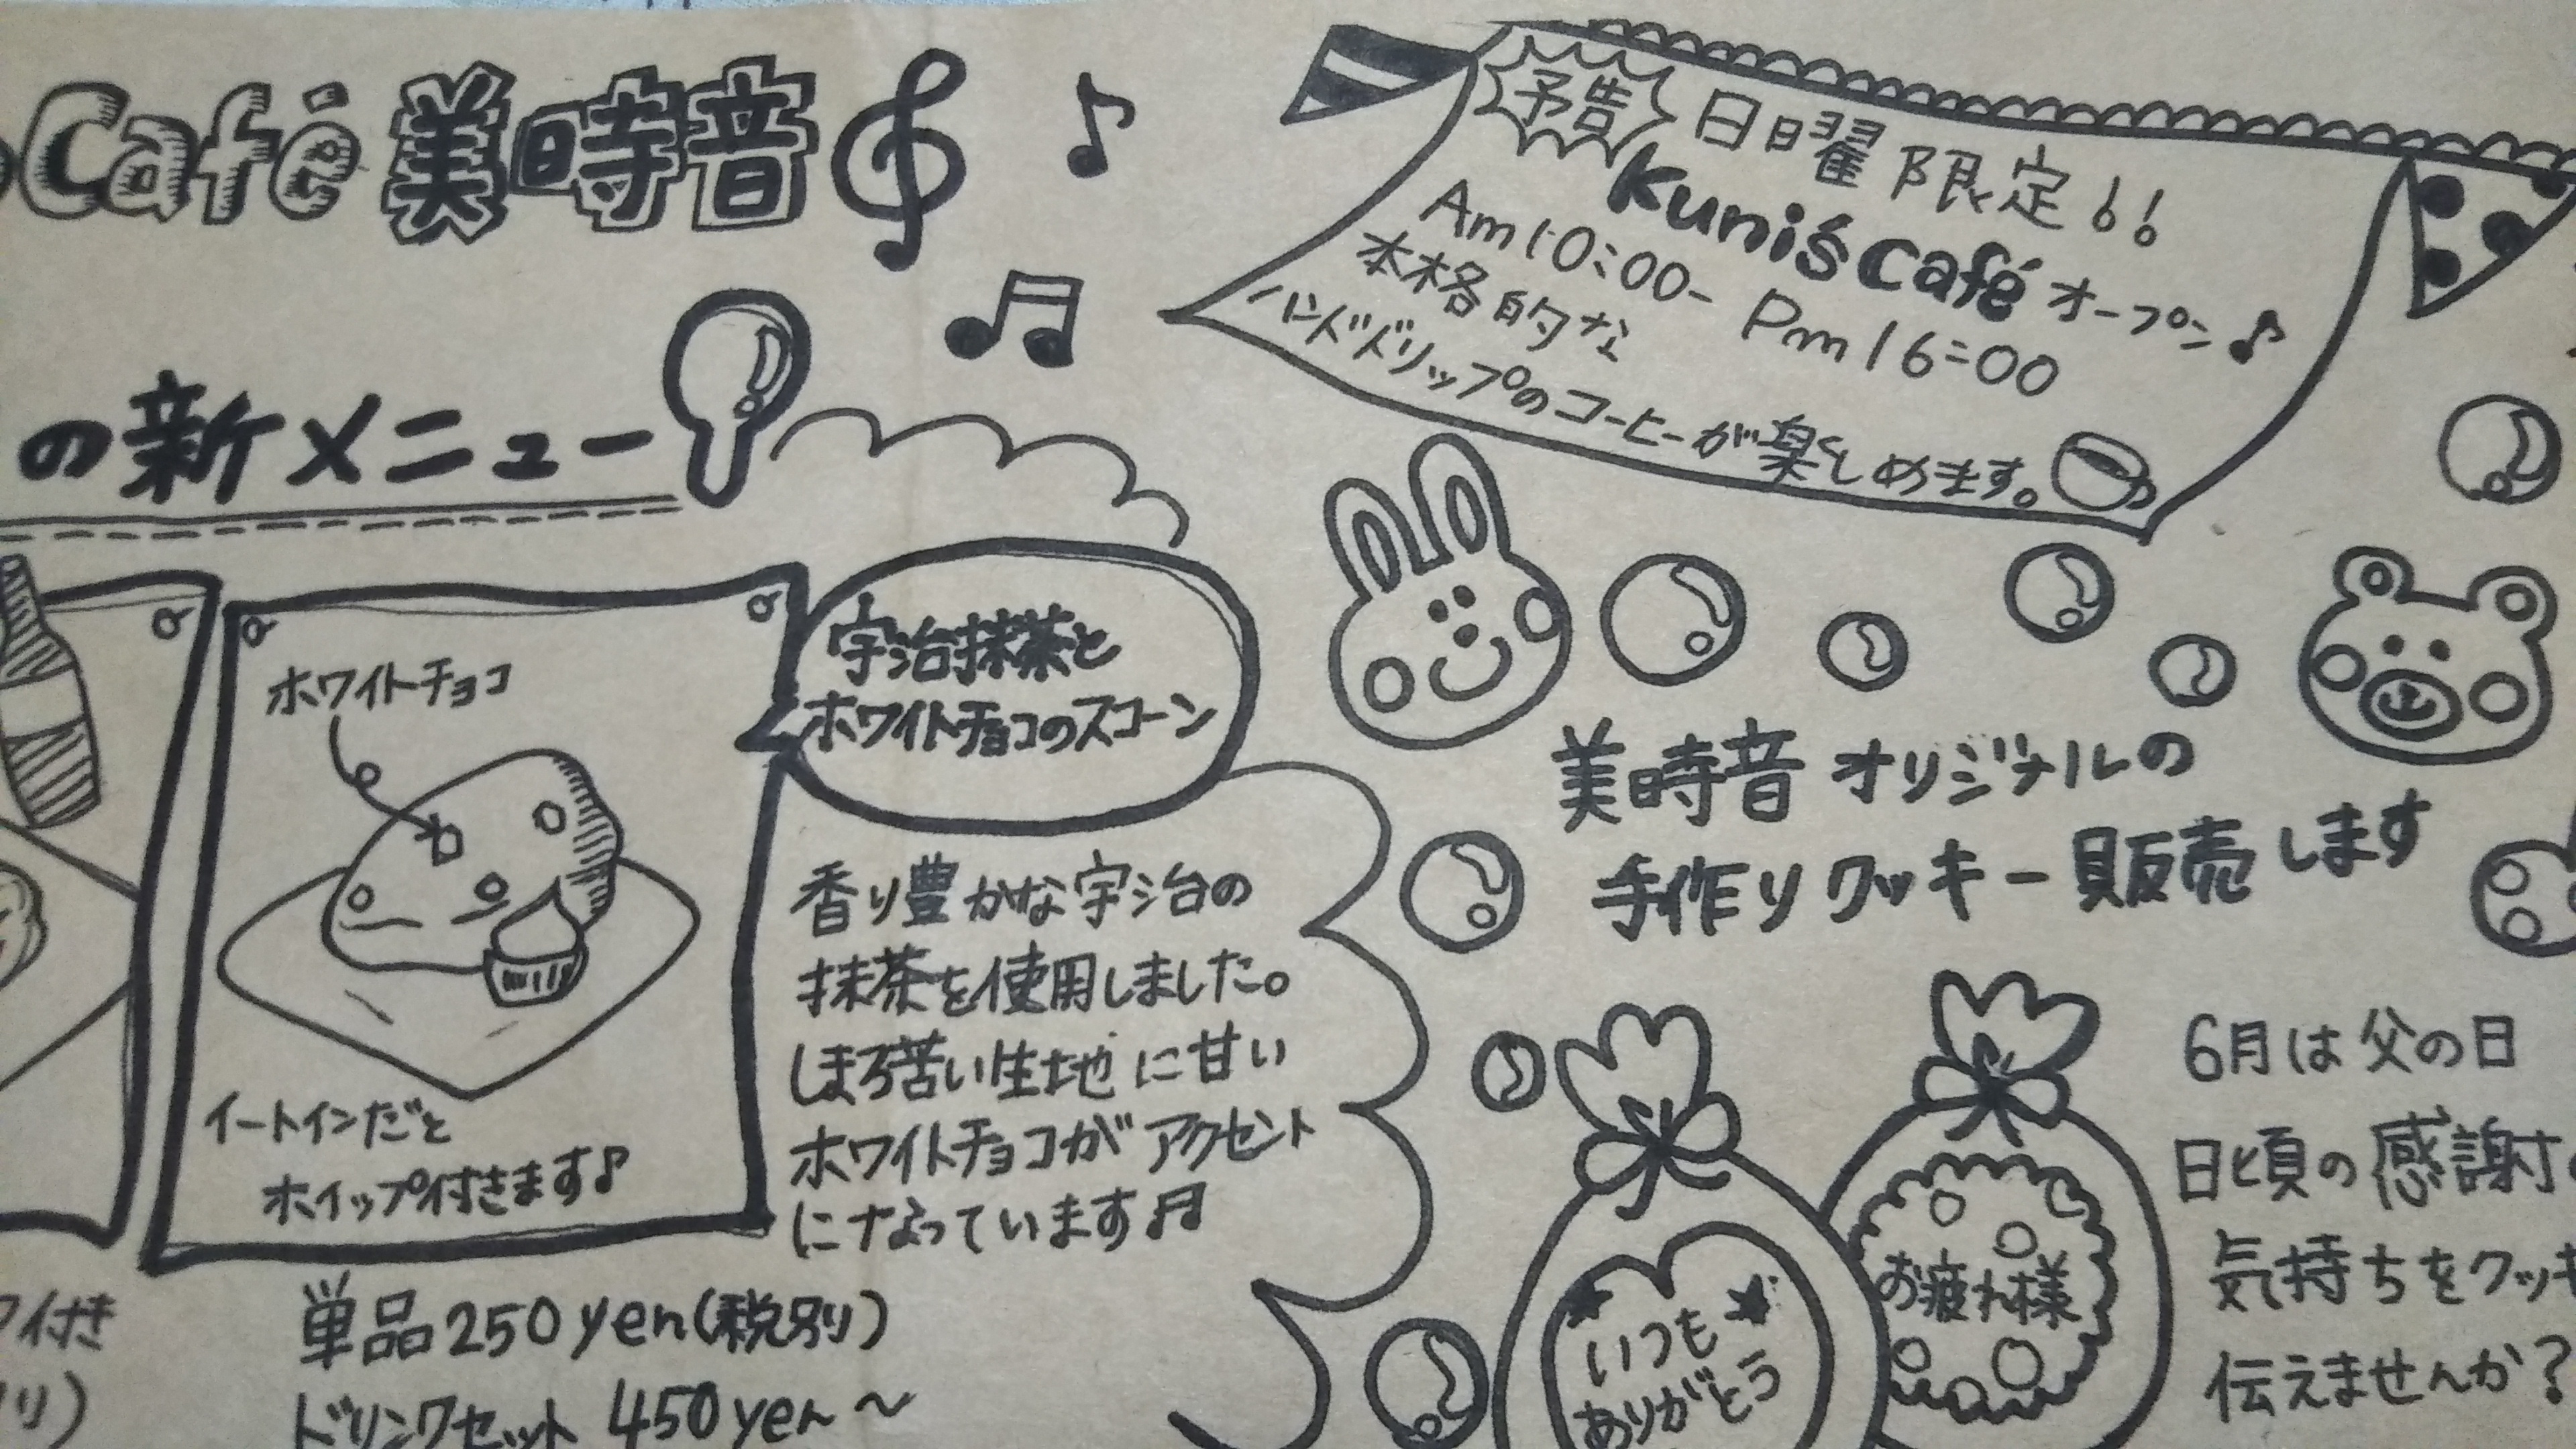 Café 美時音
の新メニュー
予告 日曜限定!!
Kuni's Café オープン♪
Am10:00- Pm16:00
本格的な
ハンドドリップのコーヒーが楽しめます。
ホワイトチョコ
イートインだと
ホイップ付きます♪
宇治抹茶と
ホワイトチョコのスコーン
香り豊かな宇治の
抹茶を使用しました。
ほろ苦い生地に甘い
ホワイトチョコがアクセント
になっています♬
単品250yen(税別)
ドリンクセット 450yen~
付き
美時音オリジナルの
手作りクッキー販売します
いつも
ありがとう
お疲れ様
6月は父の日
日頃の感謝
気持ちをクッキ
伝えませんか?